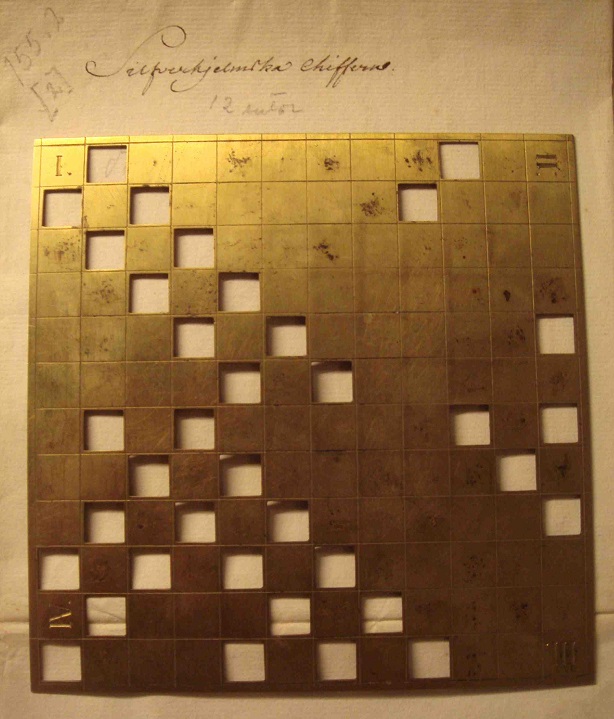 155.2
[23]
Silfverhjelmska chiffern.
12 rutor
I. II
IV. III